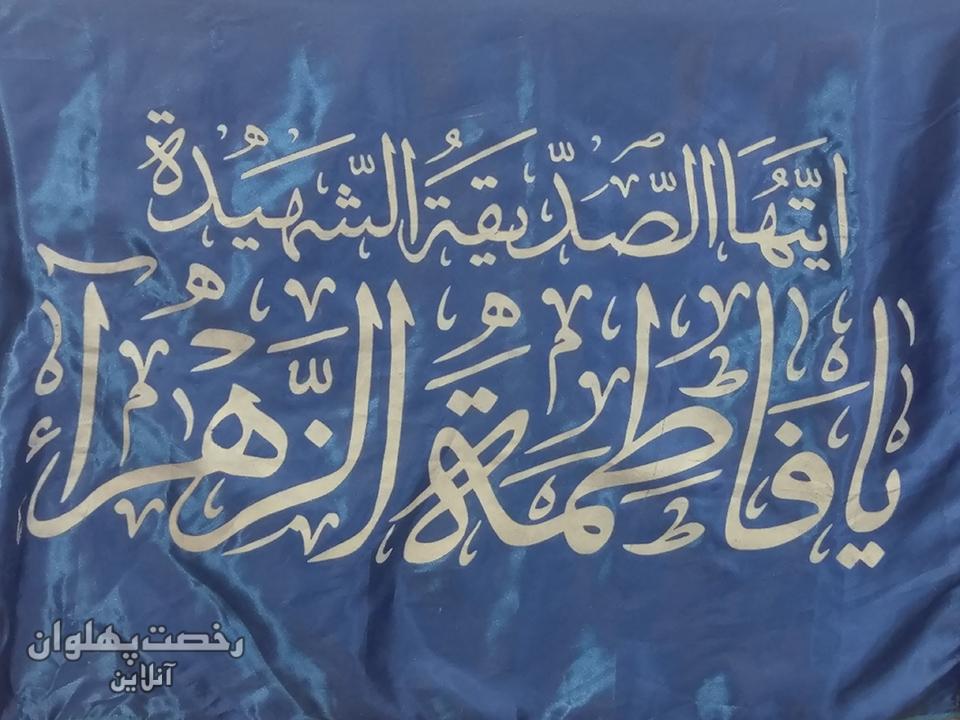 ایتها الصدیقة الشهیدة
یا فاطمة الزهرآء
رخصت پهلوان
آنلاین